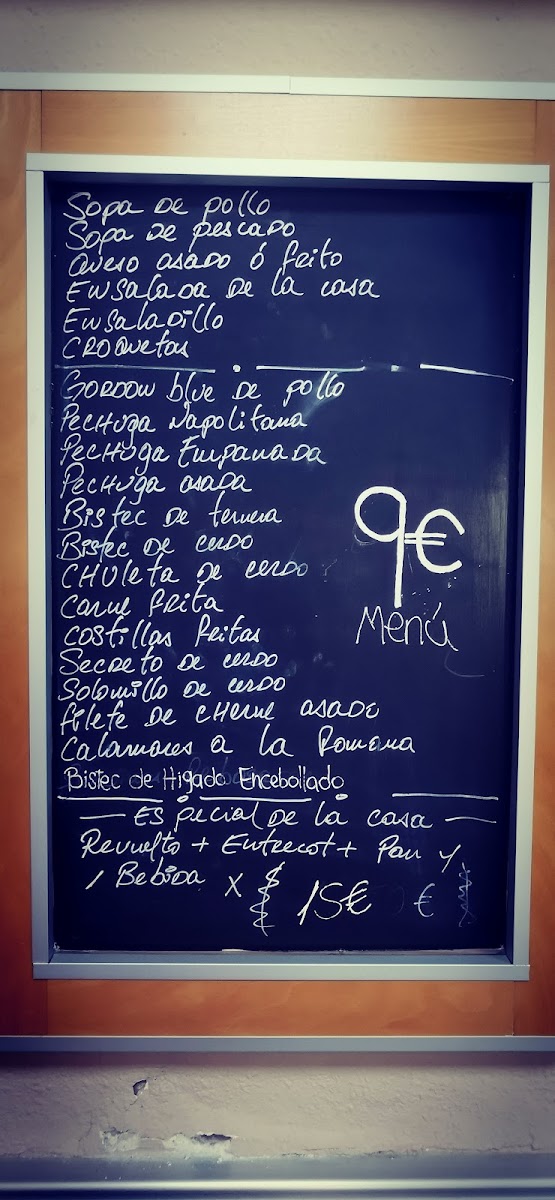 Sopa de pollo
Sopa de pescado
Queso asado ó frito
Ensalada de la casa
Ensaladillo
Croquetas
Gordon blue de pollo
Pechuga Napolitana
Pechuga Empanada
Pechuga asada
Bistec de ternera
Bistec de cerdo
Chuleta de cerdo
Carne frita
Costillas fritas
Secreto de cerdo
Solomillo de cerdo
filete de cherne asado
Calamares a la Romana
Bistec de Higado Encebollado
9€
Menú
— Especial de la casa —
Revuelto + Entrecot + Pan y
/ Bebida x 15€ €